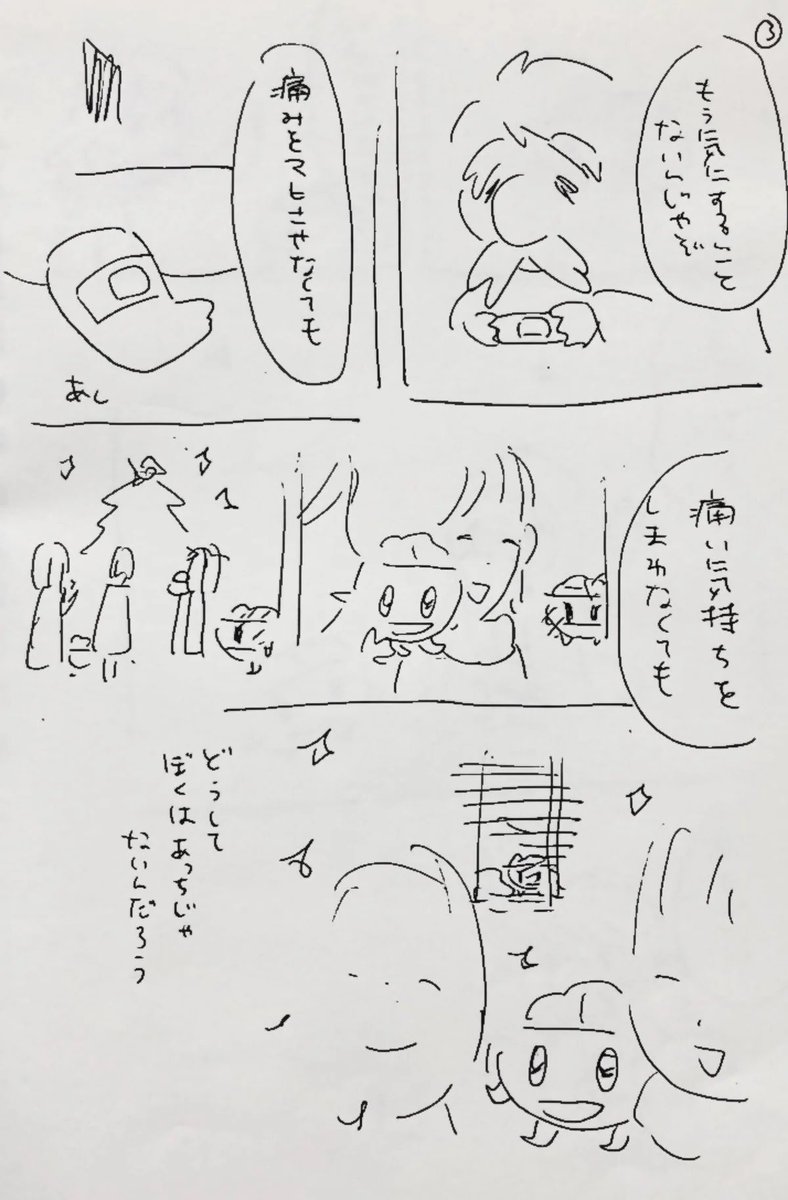 ③
もう気にすること
ないんじゃぞ
痛みをマヒさせなくても
あし
痛い気持ちを
しまわなくても
どうして
ぼくはあっちじゃ
ないんだろう